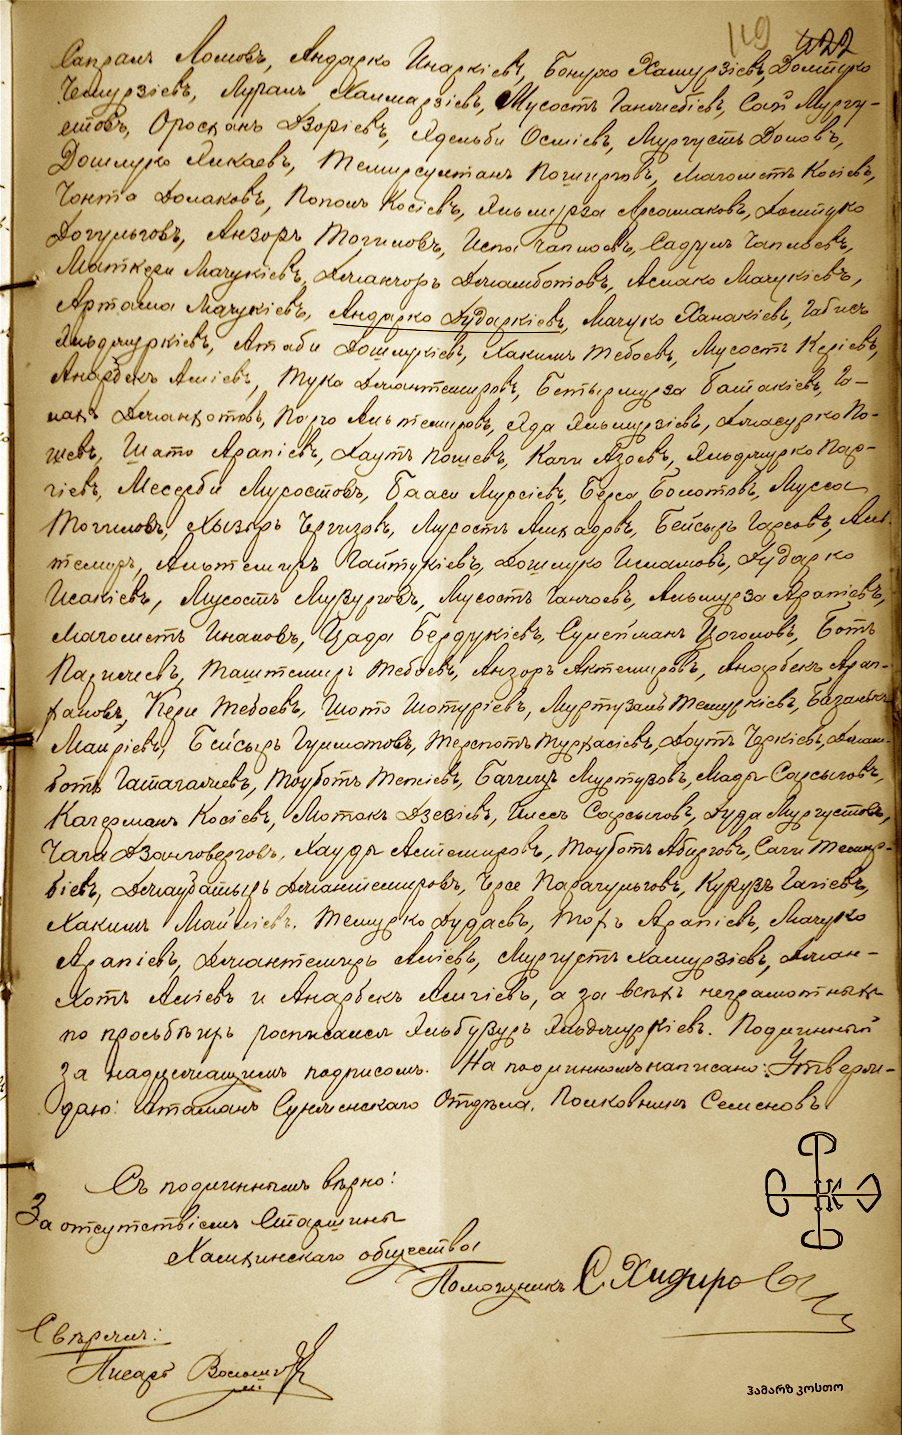 119 422
Сапралъ Ломовъ, Андарко Инаркіевъ, Бонухо Хамурзіевъ, Домтуко
Темурзіевъ, Мусостъ Ганчебіевъ, Мургу-
стовъ, Оросханъ Дзоріевъ, Эдельби Осміевъ, Мургустъ Доховъ,
Дошлуко Алкаевъ, Темирсултанъ Магометъ Косіевъ,
Чонта Домаковъ, Попомъ Косіевъ, Эльмурза Арсамаковъ,
Догульговъ, Анзоръ Тогиловъ, Испа Чаплоевъ, Садулъ Чаплоевъ,
Маткери Мачукіевъ, Джанхоръ Джамботовъ, Асмако Мачукіевъ,
Арташа Мачукіевъ, Андарко Дударкіевъ, Мачуко Ханакіевъ, Габисъ
Эльджуркіевъ, Атаби Дошлукіевъ, Хакимъ Тебоевъ, Мусостъ Керіевъ,
Анарбекъ Аліевъ, Тука Джантемировъ, Бетырмурза Баташіевъ, Го-
Джанхотовъ, Альтемировъ, Эда Эльмурзіевъ, По-
шевъ, Шато Арапіевъ, Даутъ Пошевъ, Качи Азоевъ, Эльджурко Пар-
гіевъ, Месерби Мусостовъ, Бааси Мурсіевъ, Берса Болотовъ, Мусса
Тогиловъ, Хызыръ Чергизовъ, Мусостъ Бейсыръ Гарсовъ, Аль-
темиръ, Альтемиръ Гайтукіевъ, Дошлуко Исламовъ, Дударко
Исакіевъ, Мусостъ Музурговъ, Мусостъ Ганчоевъ, Альмурза Арапіевъ,
Магометъ Иналовъ, Цада Бердукіевъ, Сулейманъ Цоголовъ, Ботъ
Паричевъ, Таштемиръ Тебоевъ, Анзоръ Актемировъ, Анарбекъ Арап-
хановъ, Кери Тебоевъ, Шото Шотуріевъ, Муртузалъ Темуркіевъ,
Маиріевъ, Бейсыръ Гулмотовъ, Даутъ Черкіевъ, Джам-
ботъ Гатагажевъ, Тоуботъ Темкіевъ, Муртузовъ, Мади Сарсыговъ,
Кагерманъ Косіевъ, Мотакъ Дзезіевъ, Сарсыговъ, Дуда Мургустовъ,
Чага Хауди Актемировъ, Тоуботъ Абирговъ, Саги Темир-
біевъ, Джаубатыръ Джантемировъ, Черсе Парагульговъ, Курузъ Гагіевъ,
Хакимъ Темурко Дудаевъ, Тохъ Арапіевъ, Мачуко
Арапіевъ, Джантемиръ Аліевъ, Мургустъ Хамурзіевъ, Джан-
хотъ Аліевъ и Анарбекъ Алгіевъ, а за всѣхъ неграмотныхъ
по просьбѣ ихъ росписался Эльбузуръ Эльджуркіевъ. Подлинный
за надлежащимъ подписомъ. На подлинномъ написано: „Утверж-
даю: Атаманъ Сунженскаго Отдѣла, Полковникъ Семеновъ“.
Съ подлиннымъ вѣрно:
За отсутствіемъ Старшины
Хамхинскаго общества
Помощникъ С. Хидиро
Свѣрялъ:
Писарь
ჰამარზ კოსთო